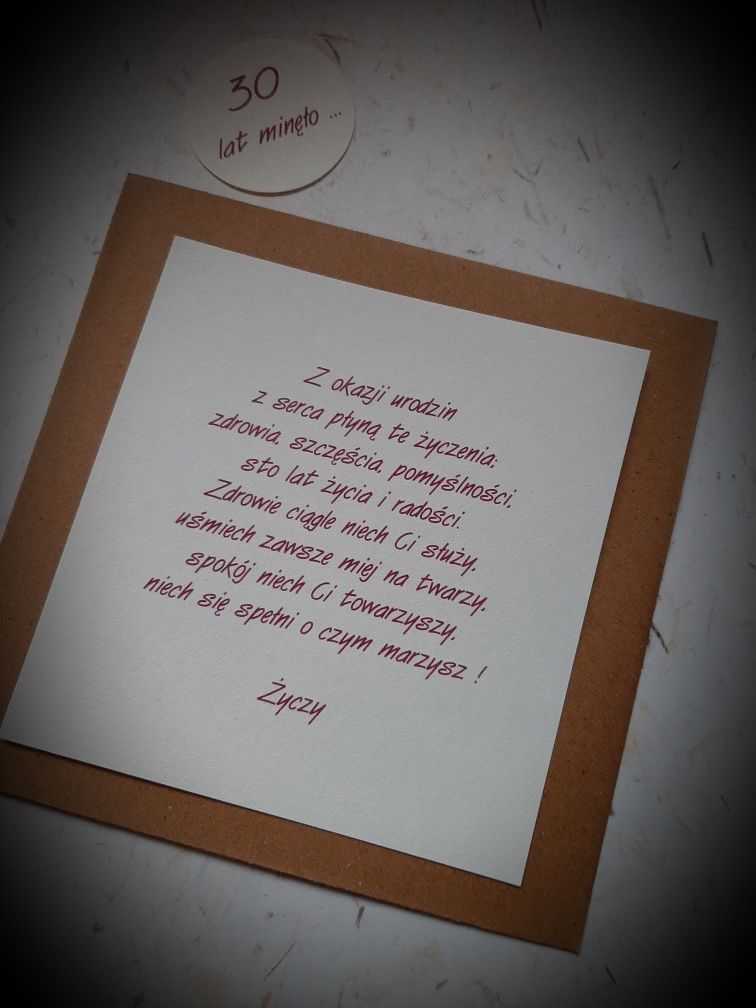 30
lat minęło ...
Z okazji urodzin
z serca płyną te życzenia:
zdrowia, szczęścia, pomyślności,
sto lat życia i radości.
Zdrowie ciągle niech Ci służy,
uśmiech zawsze miej na twarzy,
spokój niech Ci towarzyszy,
niech się spełni o czym marzysz !
Życzy